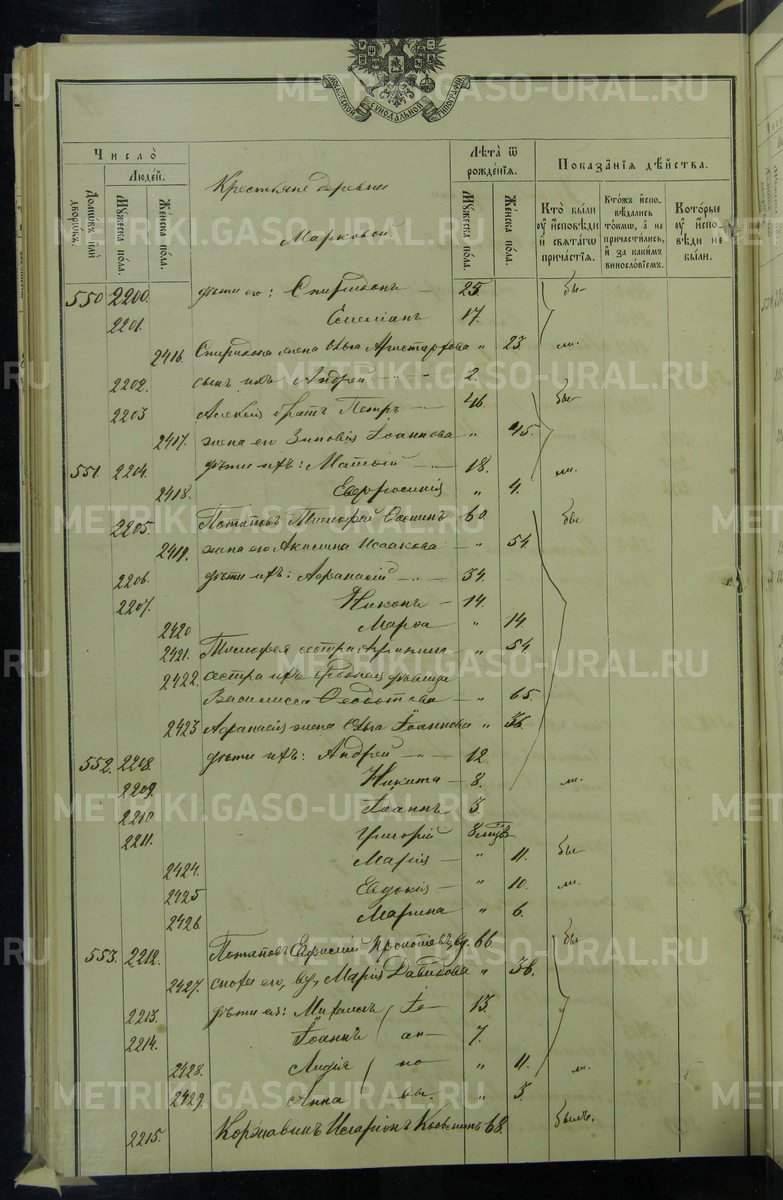 МОСКОВСКОЙ СѴНОДАЛЬНОЙ ТИПОГРАФІИ
METRIKI.GASO-URAL.RU
Число̀
Людей.
Домѡвъ или дворѡвъ.
Мужеска пола.
Женска пола.
Крестьяне деревни
Марковой
Лѣта ѿ рожденїѧ.
Мужеска пола.
Женска пола.
Показанїѧ дѣйства.
Кто̀ были оу исповѣди и свѧтагѡ причастїѧ.
Ктожъ исповѣдались токмѡ, а не причастились, и за какимъ винословїемъ.
Которые оу исповѣди не были.
550 2200. дѣти его: Спиридонъ — 25. бы-
2201. Емеліанъ 17.
2416. Спиридона жена Ольга Аристархова " 23 ли.
2202. сынъ ихъ Андрей — 2.
2203 Алексѣя братъ Петръ — 46. бы-
2417. жена его Зиновія Іоаннова " 45.
551. 2204. дѣти ихъ: Матѳий — 18. ли.
2418. Евфросинія " 4.
2205. Потаповъ Тимофей 60. бы-
2419. жена его Акилина Исаакова — " 54.
2206. дѣти ихъ: Аѳанасий — 34.
2207. Никонъ — 14.
2420 Марѳа " 14.
2421. Тимофея сестра " 54.
2422. сестра ихъ дѣвица
Василисса Ѳеодотова — " 65.
2423 Аѳанасія жена Ольга Іоаннова " 36.
552. 2208. дѣти ихъ: Андрей — 12.
2209. Никита — 8. ли.
2210 Іоаннъ 3
2211. Григорій 8 мцъ.
2424. Марія — " 11. бы-
2425 Евдокія — " 10. ли.
2426. Марина " 6.
553. 2212. Потаповъ Прокопіевъ, вд. 66. бы-
2427. сноха его, вд. Марія Давидова " 38.
2213. дѣти ея: Михаилъ Іо- 13.
2214. Іоаннъ ан- 7.
2428. Лидія но- " 11. ли.
2429. Анна вы. " 3.
2215. Коржавинъ Иларіонъ 68. былъ.